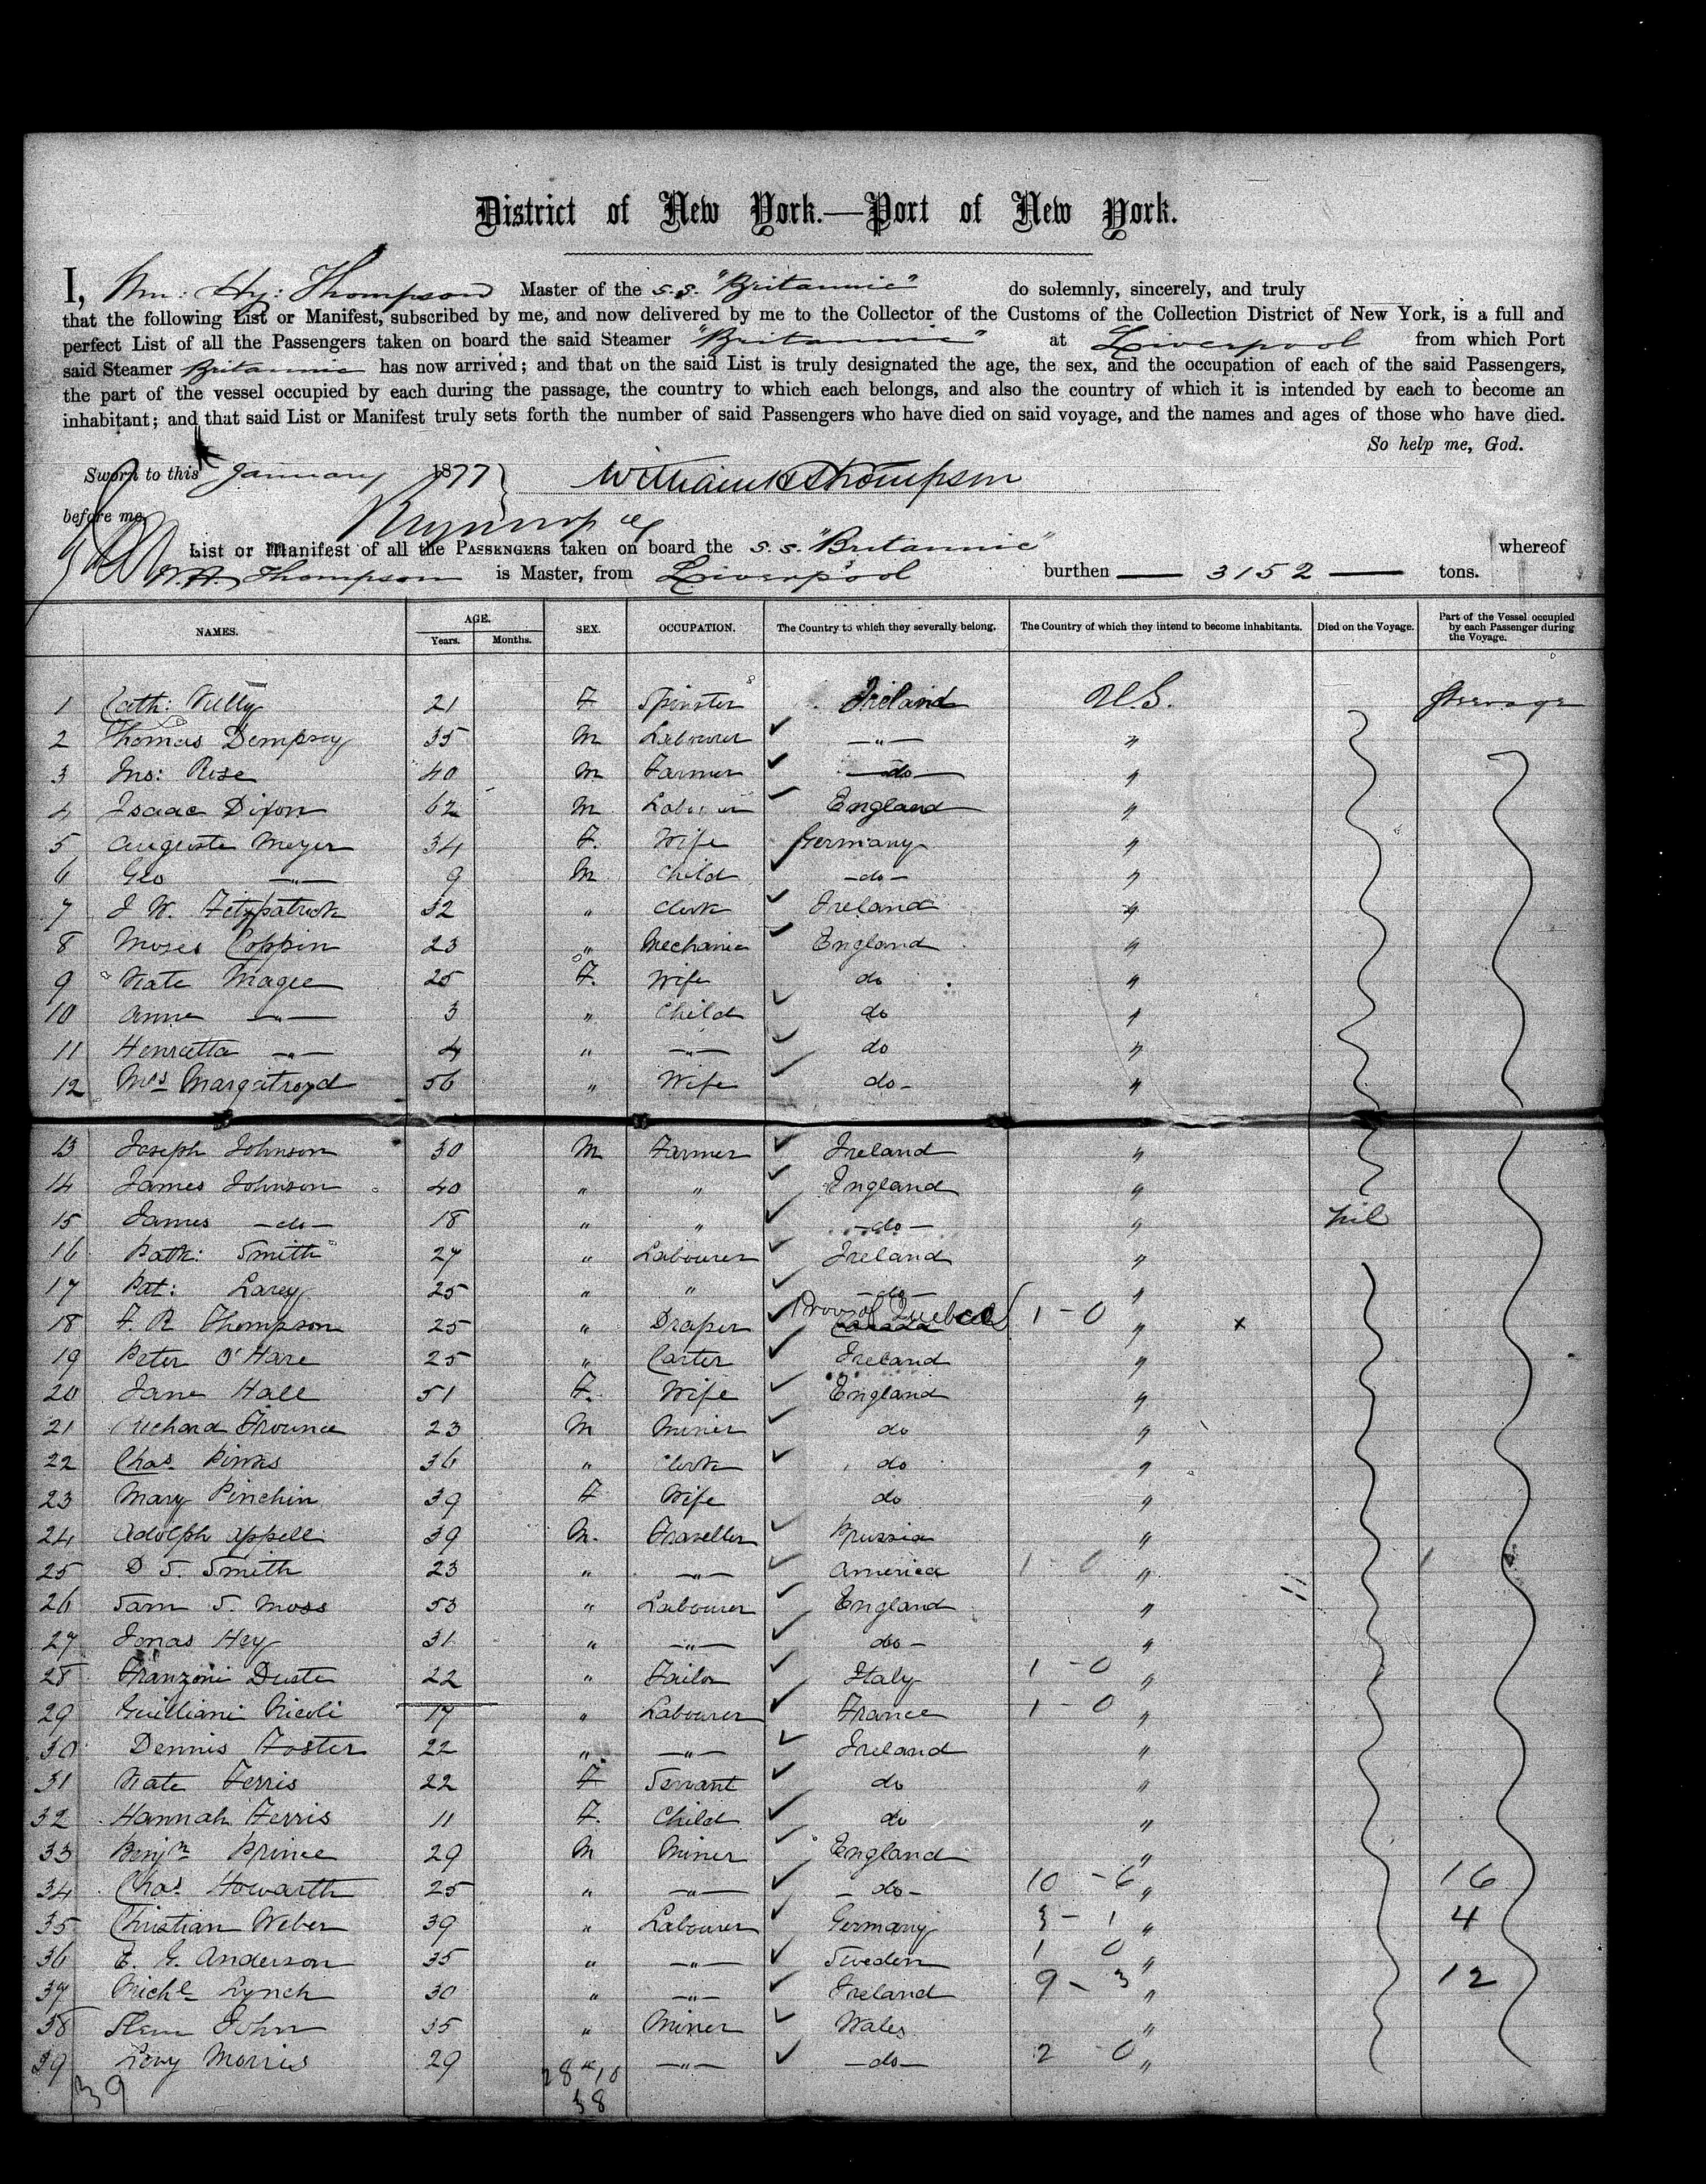 District of New York.—Port of New York.
I, Wm: Hy: Thompson Master of the s.s. "Britannic" do solemnly, sincerely, and truly
that the following List or Manifest, subscribed by me, and now delivered by me to the Collector of the Customs of the Collection District of New York, is a full and
perfect List of all the Passengers taken on board the said Steamer "Britannic" at Liverpool from which Port
said Steamer Britannic has now arrived; and that on the said List is truly designated the age, the sex, and the occupation of each of the said Passengers,
the part of the vessel occupied by each during the passage, the country to which each belongs, and also the country of which it is intended by each to become an
inhabitant; and that said List or Manifest truly sets forth the number of said Passengers who have died on said voyage, and the names and ages of those who have died.
So help me, God.
Sworn to this January 1877 William H Thompson
before me
List or Manifest of all the PASSENGERS taken on board the s.s. "Britannic" whereof
W. H. Thompson is Master, from Liverpool burthen — 3152 — tons.
NAMES. AGE. Years. Months. SEX. OCCUPATION. The Country to which they severally belong. The Country of which they intend to become inhabitants. Died on the Voyage. Part of the Vessel occupied by each Passenger during the Voyage.
1 Cath: Kelly 21 F Spinster Ireland U.S. Steerage
2 Thomas Dempsey 35 M Labourer —"— "
3 Jno: Rise 40 M Farmer —do— "
4 Isaac Dixon 62 M Labourer England "
5 Auguste Meyer 34 F. Wife Germany "
6 Geo —"— 9 M Child —do— "
7 J W. Fitzpatrick 32 " Clerk Ireland "
8 Moses Coppin 23 " Mechanic England "
9 Kate Magee 25 F. Wife do "
10 Anne —"— 3 " Child do "
11 Henrietta —"— 4 " —"— do "
12 Mrs Margatroyd 56 " Wife do- "
13 Joseph Johnson 30 M Farmer Ireland "
14 James Johnson 40 " " England "
15 James —do— 18 " " —do— " nil
16 Patk: Smith 27 " Labourer Ireland "
17 Pat: Larey 25 " " —do— "
18 F. R Thompson 25 " Draper Prov. of Quebec Canada 1 - 0 " x
19 Peter O'Hare 25 " Carter Ireland "
20 Jane Hall 51 F. Wife England "
21 Richard Trounce 23 M Miner do "
22 Chas. Pinks 36 " Clerk do "
23 Mary Pinchin 39 F Wife do "
24 Adolph Appell 39 M. Traveller Prussia "
25 D S. Smith 23 " —"— America 1 0 "
26 Sam S. Moss 53 " Labourer England "
27 Jonas Hey 31 " —"— do— "
28 Franzoni Duste 22 " Tailor Italy 1 - 0 "
29 Guilliani Nicoli 17 " Labourer France 1 - 0 "
30 Dennis Foster 22 " —"— Ireland "
31 Kate Ferris 22 F Servant do "
32 Hannah Ferris 11 F. Child do "
33 Benjn Prince 29 M Miner England "
34 Chas. Howarth 25 " —"— — do— 10 - 6 " 16
35 Christian Weber 39 " Labourer Germany 3 - 1 " 4
36 E. G. Anderson 35 " —"— Sweden 1 0 "
37 Michl Lynch 30 " —"— Ireland 9 - 3 " 12
38 John 35 " Miner Wales "
39 Levy Morris 29 —"— —do— 2 - 0 "
39 28 10
38